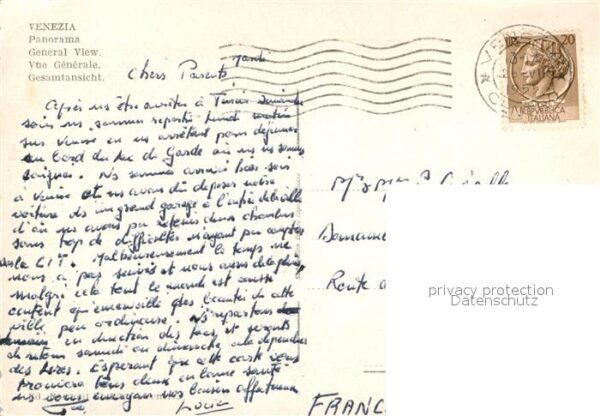 VENEZIA
Panorama
General View.
Vue Générale.
Gesamtansicht.
Mardi
Chers Parents
Après ns être arrêtés à
soir ns sommes repartis lundi matin
sur Venise en ns arrêtant pour déjeuner
au bord du Lac de Garde où ns ns sommes
baignés. Ns sommes arrivés hier soir
à Venise et ns avons dû déposer notre
voiture ds un grand garage à l'entrée de la ville
d'où ns avons pu retenir deux chambres
sans trop de difficultés
CIT. Malheureusement le temps ne
nous a pas servis et nous avons de la pluie,
malgré cela tout le monde est aussi
content qu'émerveillé des beautés de cette
ville peu ordinaire. Ns repartons
en direction des lacs et serons
de retour samedi ou dimanche, cela dépendra
des Lires. Espérant que cette carte vous
trouvera tous deux en bonne santé
ns vous envoyons nos baisers affectueux
Lucie
Mr & Mme
Domaine
Route d
FRANC
20
REPUBBLICA
ITALIANA
privacy protection
Datenschutz